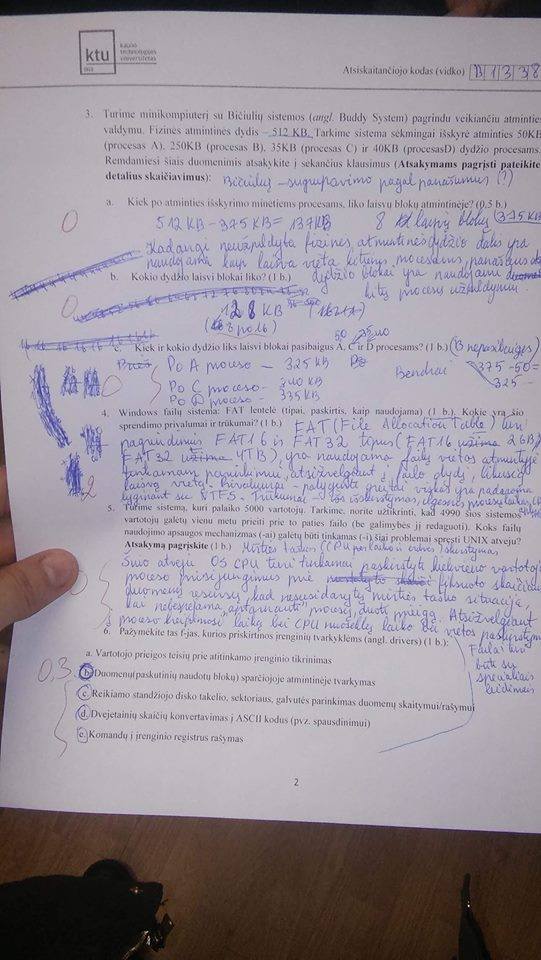 ktu
1922
kauno
technologijos
universitetas
Atsiskaitančiojo kodas (vidko) B 1 3 3 8
3. Turime minikompiuterį su Bičiulių sistemos (angl. Buddy System) pagrindu veikiančiu atminties
valdymu. Fizinės atmintinės dydis – 512 KB. Tarkime sistema sėkmingai išskyrė atminties 50KB
(procesas A), 250KB (procesas B), 35KB (procesas C) ir 40KB (procesasD) dydžio procesams.
Remdamiesi šiais duomenimis atsakykite į sekančius klausimus (Atsakymams pagrįsti pateikite
detalius skaičiavimus): Bičiulių – sugrupavimo pagal panašumus (?)
a. Kiek po atminties išskyrimo minėtiems procesams, liko laisvų blokų atmintinėje? (0,5 b.)
0
512 KB – 375 KB = 137 KB 8 laisvų blokų (375 KB
Kadangi neužpildyta fizinės atmintinės dydžio dalis yra
naudojama kaip laisva vieta kitiems procesams, panašaus
dydžio blokai yra naudojami
b. Kokio dydžio laisvi blokai liko? (1 b.)
kitų procesų užpildymui
0
128 KB
(8 po 16)
c. Kiek ir kokio dydžio liks laisvi blokai pasibaigus A, C ir D procesams? (1 b.) (B nepasibaigęs)
0
Po A proceso – 325 KB
Bendrai 375 – 50 =
325
Po C proceso – 340 KB
Po D proceso – 335 KB
4. Windows failų sistema: FAT lentelė (tipai, paskirtis, kaip naudojama) (1 b.). Kokie yra šio
sprendimo privalumai ir trūkumai? (1 b.) FAT (File Allocation Table) turi
pagrindinius FAT16 ir FAT32 tipus (FAT16 užima 2GB,
FAT32 užima 4TB), yra naudojama failų vietos atmintyje
tinkamam pagrindimui, atsižvelgiant į failo dydį, likusią
laisvą vietą. Privalumai – palyginti greitai viskas yra padaroma
lyginant su NTFS. Trūkumai –
2
5. Turime sistemą, kuri palaiko 5000 vartotojų. Tarkime, norite užtikrinti, kad 4990 šios sistemos
vartotojų galėtų vienu metu prieiti prie to paties failo (be galimybės jį redaguoti). Koks failų
naudojimo apsaugos mechanizmas (-ai) galėtų būti tinkamas (-i) šiai problemai spręsti UNIX atveju?
Atsakymą pagrįskite (1 b.) Mirties taškas (CPU skirstymas
Šiuo atveju OS CPU turi tinkamai paskirstyti kiekvieno vartotojo
proceso prisijungimus prie fiksuoto skaičiaus
duomenų resursų, kad nesusidarytų mirties taško situacija,
kai nebespėjama „aptarnauti“ procesų, duoti prieigą. Atsižvelgiant
į proceso kreipimosi laiką bei CPU nuoseklų laiko bei vietos paskirstymą.
0
Failai turi
būti su
specialiais
leidimais
6. Pažymėkite tas f-jas, kurios priskirtinos įrenginių tvarkyklėms (angl. drivers) (1 b.):
0,3
a. Vartotojo prieigos teisių prie atitinkamo įrenginio tikrinimas
b. Duomenų(paskutinių naudotų blokų) sparčiojoje atmintinėje tvarkymas
c. Reikiamo standžiojo disko takelio, sektoriaus, galvutės parinkimas duomenų skaitymui/rašymui
d. Dvejetainių skaičių konvertavimas į ASCII kodus (pvz. spausdinimui)
e. Komandų į įrenginio registrus rašymas
2